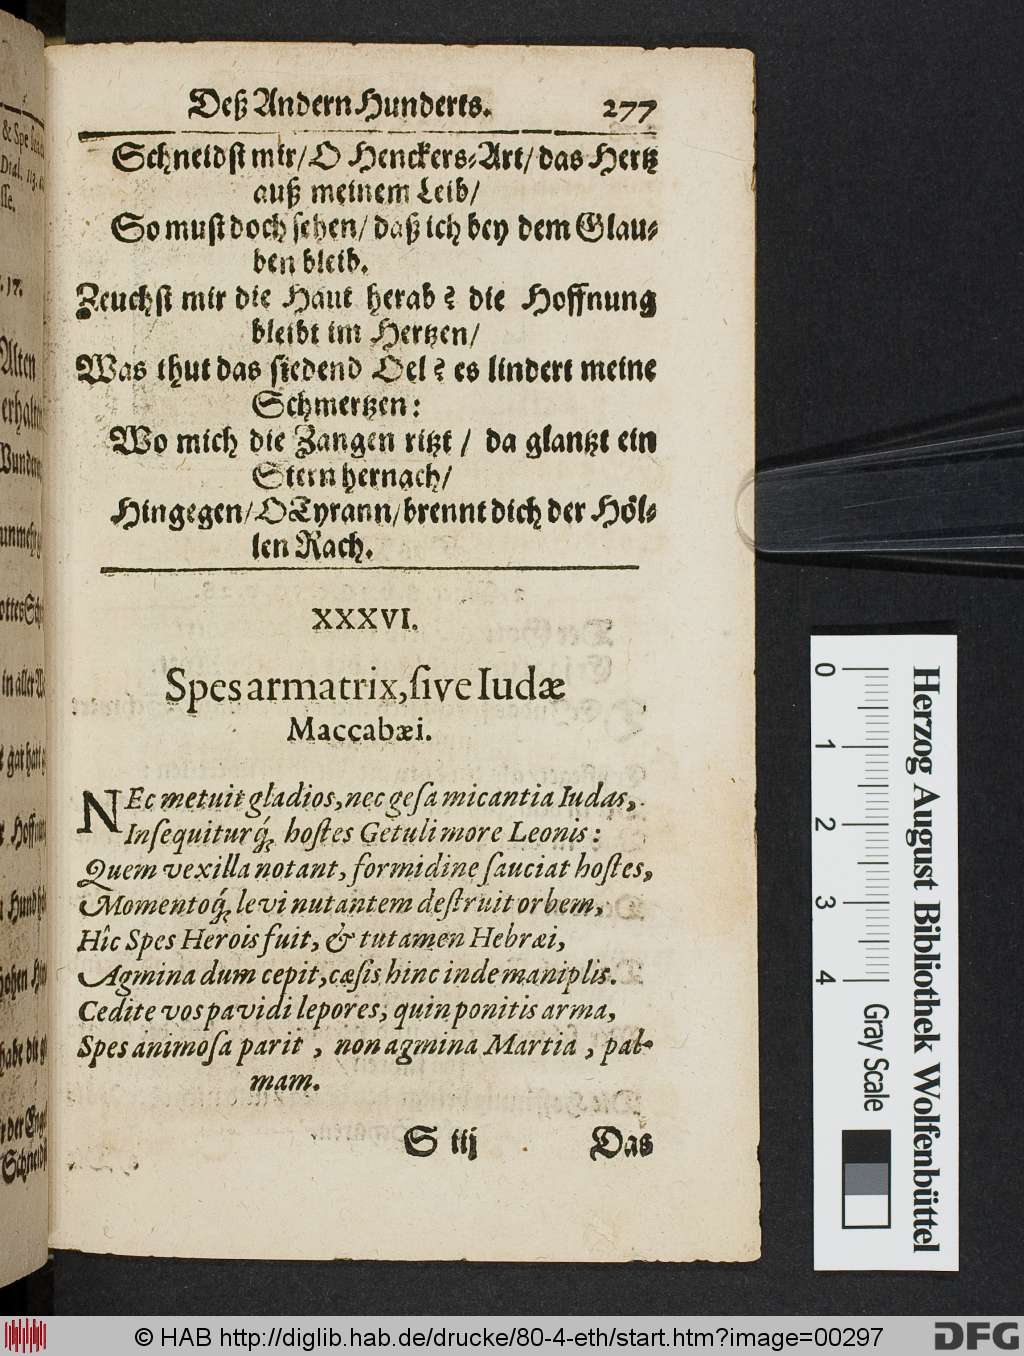 Deß Andern Hunderts. 277
Schneidst mir/ O Henckers-Art/ das Hertz
auß meinem Leib/
So must doch sehen/ daß ich bey dem Glau-
ben bleib.
Zeuchst mir die Haut herab? die Hoffnung
bleibt im Hertzen/
Was thut das siedend Oel? es lindert meine
Schmertzen:
Wo mich die Zangen ritzt / da glantzt ein
Stern hernach/
Hingegen/ O Tyrann/ brennt dich der Höl-
len Rach.
XXXVI.
Spes armatrix, ſive Iudæ
Maccabæi.
NEc metuit gladios, nec geſa micantia Iudas,
Inſequiturq́; hoſtes Getuli more Leonis:
Quem vexilla notant, formidine ſauciat hoſtes,
Momentoq́; levi nutantem deſtruit orbem,
Hîc Spes Herois fuit, & tutamen Hebræi,
Agmina dum cepit, cæſis hinc inde maniplis.
Cedite vos pavidi lepores, quin ponitis arma,
Spes animoſa parit, non agmina Martia, pal-
mam.
S iij Das
0 1 2 3 4
Gray Scale
Herzog August Bibliothek Wolfenbüttel
© HAB http://diglib.hab.de/drucke/80-4-eth/start.htm?image=00297
DFG